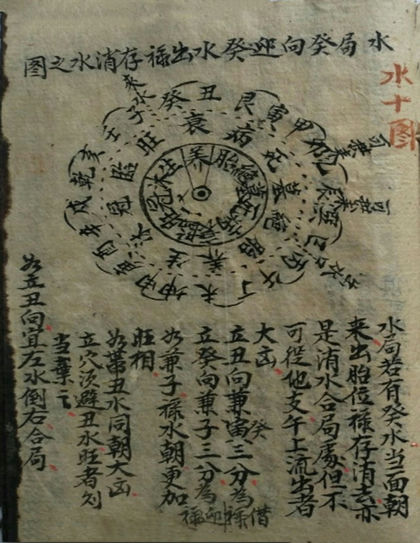 水十圖
水局癸向迎癸水出祿存消水之圖
來水
子 癸 丑 艮 寅 甲 卯
巳 丙 午 丁 未 坤 申 庚 酉 辛 戌 乾 亥 壬
衰 病 死 墓 絕 胎 養 生 沐 冠 臨 旺
養 胎 絕 墓
水局若有癸水当面朝
來出胎位祿存消去亦
是消水合局處但不
可從他支午上流出者
大凶
癸
立丑向兼寅三分為借祿
立癸向兼子三分為迎祿
如兼子祿水朝更加
旺相
如帶丑水同朝大凶
立穴須避丑水旺者勿
当棄之
如立丑向宜左水倒右合局